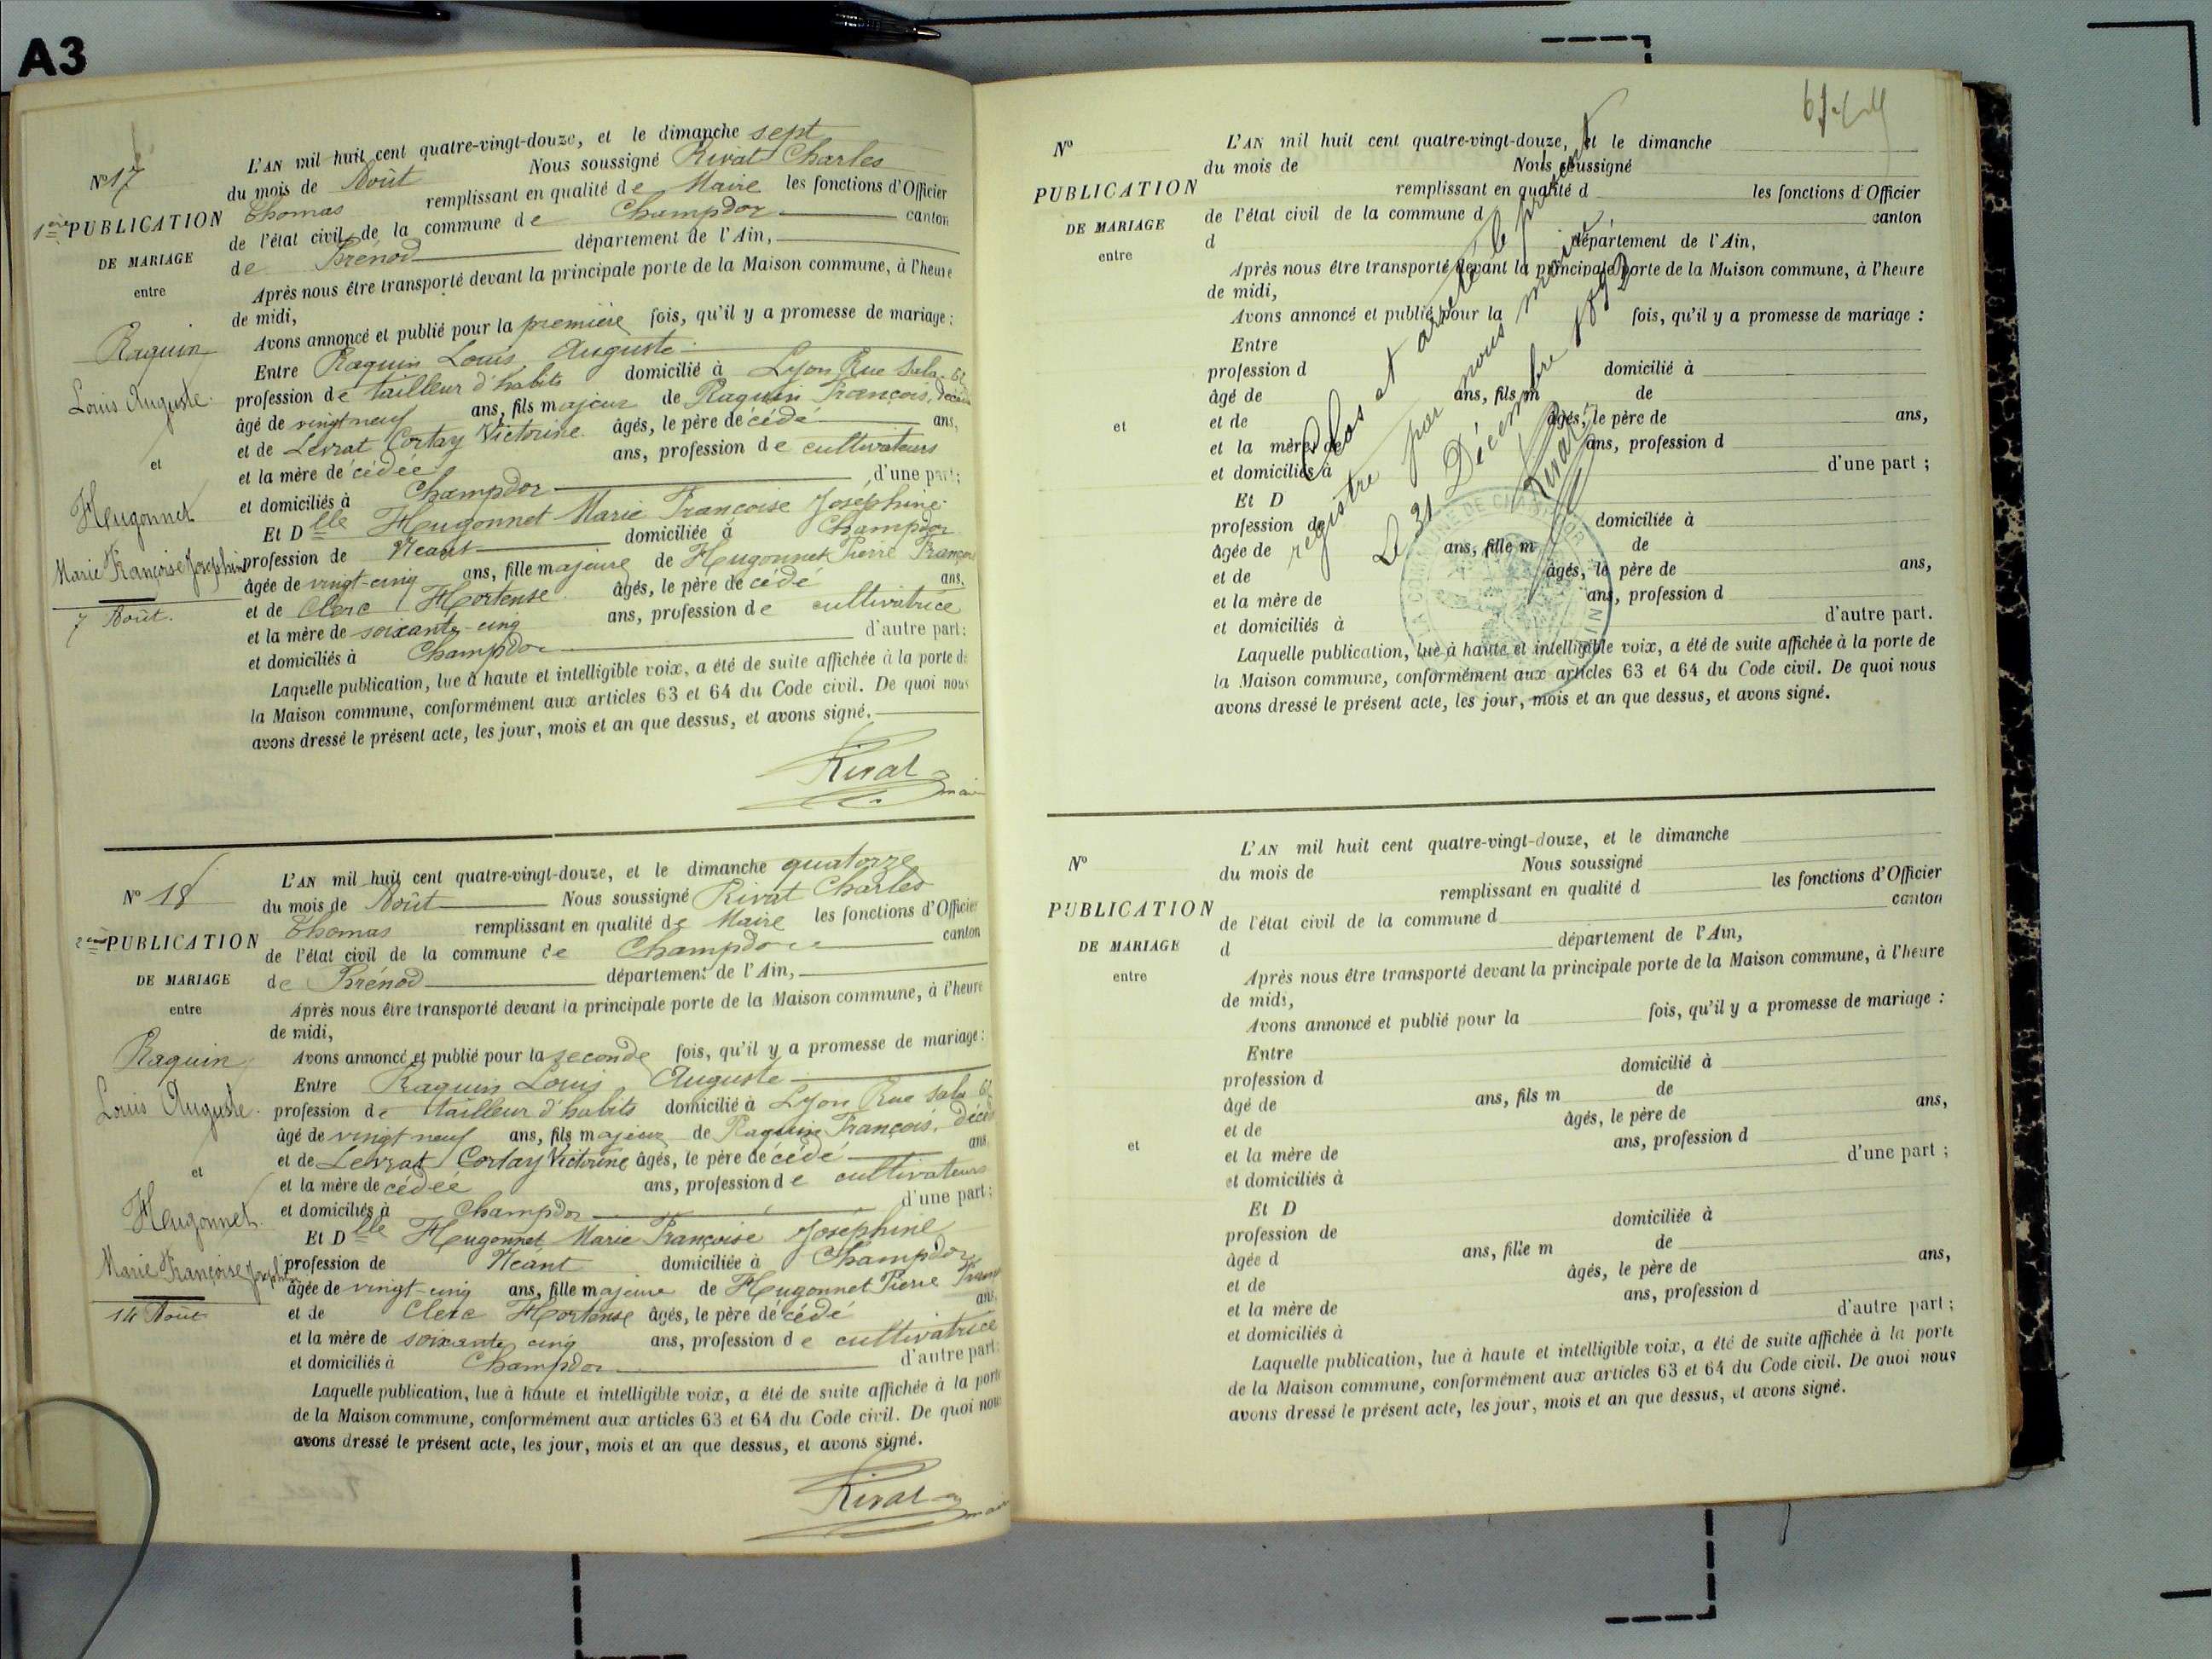 A3
N° 17
1ère PUBLICATION
DE MARIAGE
entre
Raquin
Louis Auguste
et
Heugonnet
Marie Françoise Joséphine
7 Août.
L'AN mil huit cent quatre-vingt-douze, et le dimanche sept
du mois de Août Nous soussigné Rivat Charles
Thomas remplissant en qualité de Maire les fonctions d'Officier
de l'état civil de la commune de Champdor canton
de Brénod département de l'Ain,
Après nous être transporté devant la principale porte de la Maison commune, à l'heure
de midi,
Avons annoncé et publié pour la première fois, qu'il y a promesse de mariage :
Entre Raquin Louis Auguste
profession de tailleur d'habits domicilié à Lyon Rue Sala
âgé de vingt neuf ans, fils majeur de Raquin François, décédé
et de Levrat Cortay Victorine âgés, le père décédé ans,
et la mère décédée ans, profession de cultivateurs
et domiciliés à Champdor d'une part ;
Et Dlle Heugonnet Marie Françoise Joséphine
profession de Néant domiciliée à Champdor
âgée de vingt-cinq ans, fille majeure de Heugonnet Pierre François
et de Clerc Hortense âgés, le père décédé ans,
et la mère de soixante-cinq ans, profession de cultivatrice
et domiciliés à Champdor d'autre part ;
Laquelle publication, lue à haute et intelligible voix, a été de suite affichée à la porte de
la Maison commune, conformément aux articles 63 et 64 du Code civil. De quoi nous
avons dressé le présent acte, les jour, mois et an que dessus, et avons signé.
Rivat
maire
N° 18
2ème PUBLICATION
DE MARIAGE
entre
Raquin
Louis Auguste.
et
Heugonnet
Marie Françoise Joséphine
14 Août
L'AN mil huit cent quatre-vingt-douze, et le dimanche quatorze
du mois de Août Nous soussigné Rivat Charles
Thomas remplissant en qualité de Maire les fonctions d'Officier
de l'état civil de la commune de Champdor canton
de Brénod département de l'Ain,
Après nous être transporté devant la principale porte de la Maison commune, à l'heure
de midi,
Avons annoncé et publié pour la seconde fois, qu'il y a promesse de mariage :
Entre Raquin Louis Auguste
profession de tailleur d'habits domicilié à Lyon Rue Sala
âgé de vingt neuf ans, fils majeur de Raquin François, décédé
et de Levrat Cortay Victorine âgés, le père décédé ans
et la mère décédée ans, profession de cultivateurs
et domiciliés à Champdor d'une part ;
Et Dlle Heugonnet Marie Françoise Joséphine
profession de Néant domiciliée à Champdor
âgée de vingt-cinq ans, fille majeure de Heugonnet Pierre
et de Clerc Hortense âgés, le père décédé ans,
et la mère de soixante cinq ans, profession de cultivatrice
et domiciliés à Champdor d'autre part
Laquelle publication, lue à haute et intelligible voix, a été de suite affichée à la porte
de la Maison commune, conformément aux articles 63 et 64 du Code civil. De quoi nous
avons dressé le présent acte, les jour, mois et an que dessus, et avons signé.
Rivat
maire
N°
PUBLICATION
DE MARIAGE
entre
et
L'AN mil huit cent quatre-vingt-douze, et le dimanche
du mois de Nous soussigné
remplissant en qualité d les fonctions d'Officier
de l'état civil de la commune d canton
d département de l'Ain,
Après nous être transporté devant la principale porte de la Maison commune, à l'heure
de midi,
Avons annoncé et publié pour la fois, qu'il y a promesse de mariage :
Entre
profession d domicilié à
âgé de ans, fils m de
et de âgés, le père de ans,
et la mère de ans, profession d
et domiciliés à d'une part ;
Et D
profession de domiciliée à
âgée de ans, fille m de
et de âgés, le père de ans,
et la mère de ans, profession d
et domiciliés à d'autre part.
Laquelle publication, lue à haute et intelligible voix, a été de suite affichée à la porte de
la Maison commune, conformément aux articles 63 et 64 du Code civil. De quoi nous
avons dressé le présent acte, les jour, mois et an que dessus, et avons signé.
Clos et arrêté le présent
registre par nous maire
Le 31 Décembre 1892
Rivat
N°
PUBLICATION
DE MARIAGE
entre
et
L'AN mil huit cent quatre-vingt-douze, et le dimanche
du mois de Nous soussigné
remplissant en qualité d les fonctions d'Officier
de l'état civil de la commune d canton
d département de l'Ain,
Après nous être transporté devant la principale porte de la Maison commune, à l'heure
de midi,
Avons annoncé et publié pour la fois, qu'il y a promesse de mariage :
Entre
profession d domicilié à
âgé de ans, fils m de
et de âgés, le père de ans,
et la mère de ans, profession d
et domiciliés à d'une part ;
Et D
profession de domiciliée à
âgée d ans, fille m de
et de âgés, le père de ans,
et la mère de ans, profession d
et domiciliés à d'autre part ;
Laquelle publication, lue à haute et intelligible voix, a été de suite affichée à la porte
de la Maison commune, conformément aux articles 63 et 64 du Code civil. De quoi nous
avons dressé le présent acte, les jour, mois et an que dessus, et avons signé.